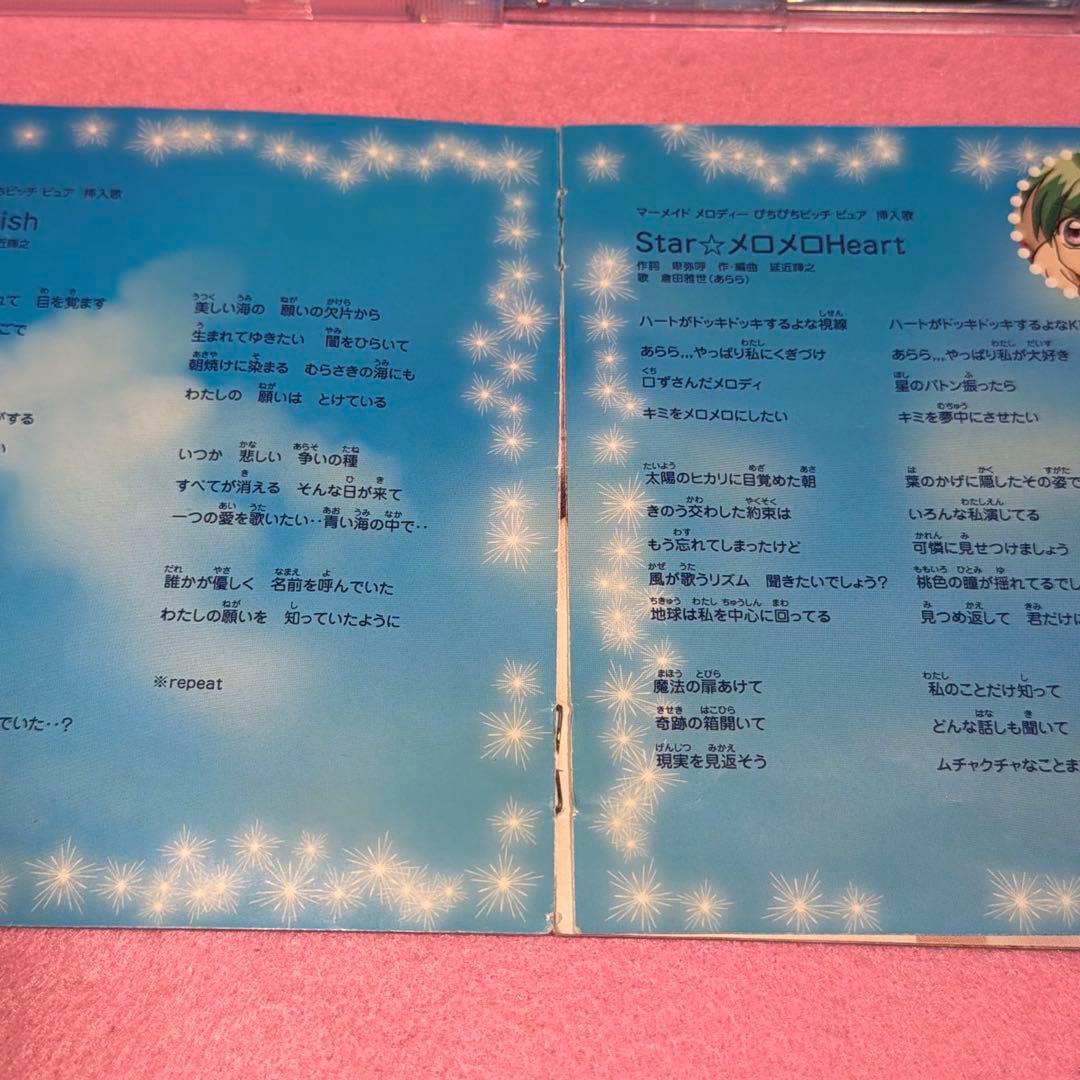 ピッチ ピュア 挿入歌
ish
近輝之
れて 目を覚ます
ごで
がする
い
でいた‥?
美しい海の 願いの欠片から
生まれてゆきたい 闇をひらいて
朝焼けに染まる むらさきの海にも
わたしの 願いは とけている
いつか 悲しい 争いの種
すべてが消える そんな日が来て
一つの愛を歌いたい‥青い海の中で‥
誰かが優しく 名前を呼んでいた
わたしの願いを 知っていたように
※repeat
マーメイド メロディー ぴちぴちピッチ ピュア 挿入歌
Star☆メロメロHeart
作詞 卑弥呼 作・編曲 延近輝之
歌 倉田雅世(あらら)
ハートがドッキドッキするよな視線
あらら,,,やっぱり私にくぎづけ
口ずさんだメロディ
キミをメロメロにしたい
太陽のヒカリに目覚めた朝
きのう交わした約束は
もう忘れてしまったけど
風が歌うリズム 聞きたいでしょう?
地球は私を中心に回ってる
魔法の扉あけて
奇跡の箱開いて
現実を見返そう
ハートがドッキドッキするよなK
あらら,,,やっぱり私が大好き
星のバトン振ったら
キミを夢中にさせたい
葉のかげに隠したその姿で
いろんな私演じてる
可憐に見せつけましょう
桃色の瞳が揺れてるでし
見つめ返して 君だけに
私のことだけ知って
どんな話しも聞いて
ムチャクチャなことま